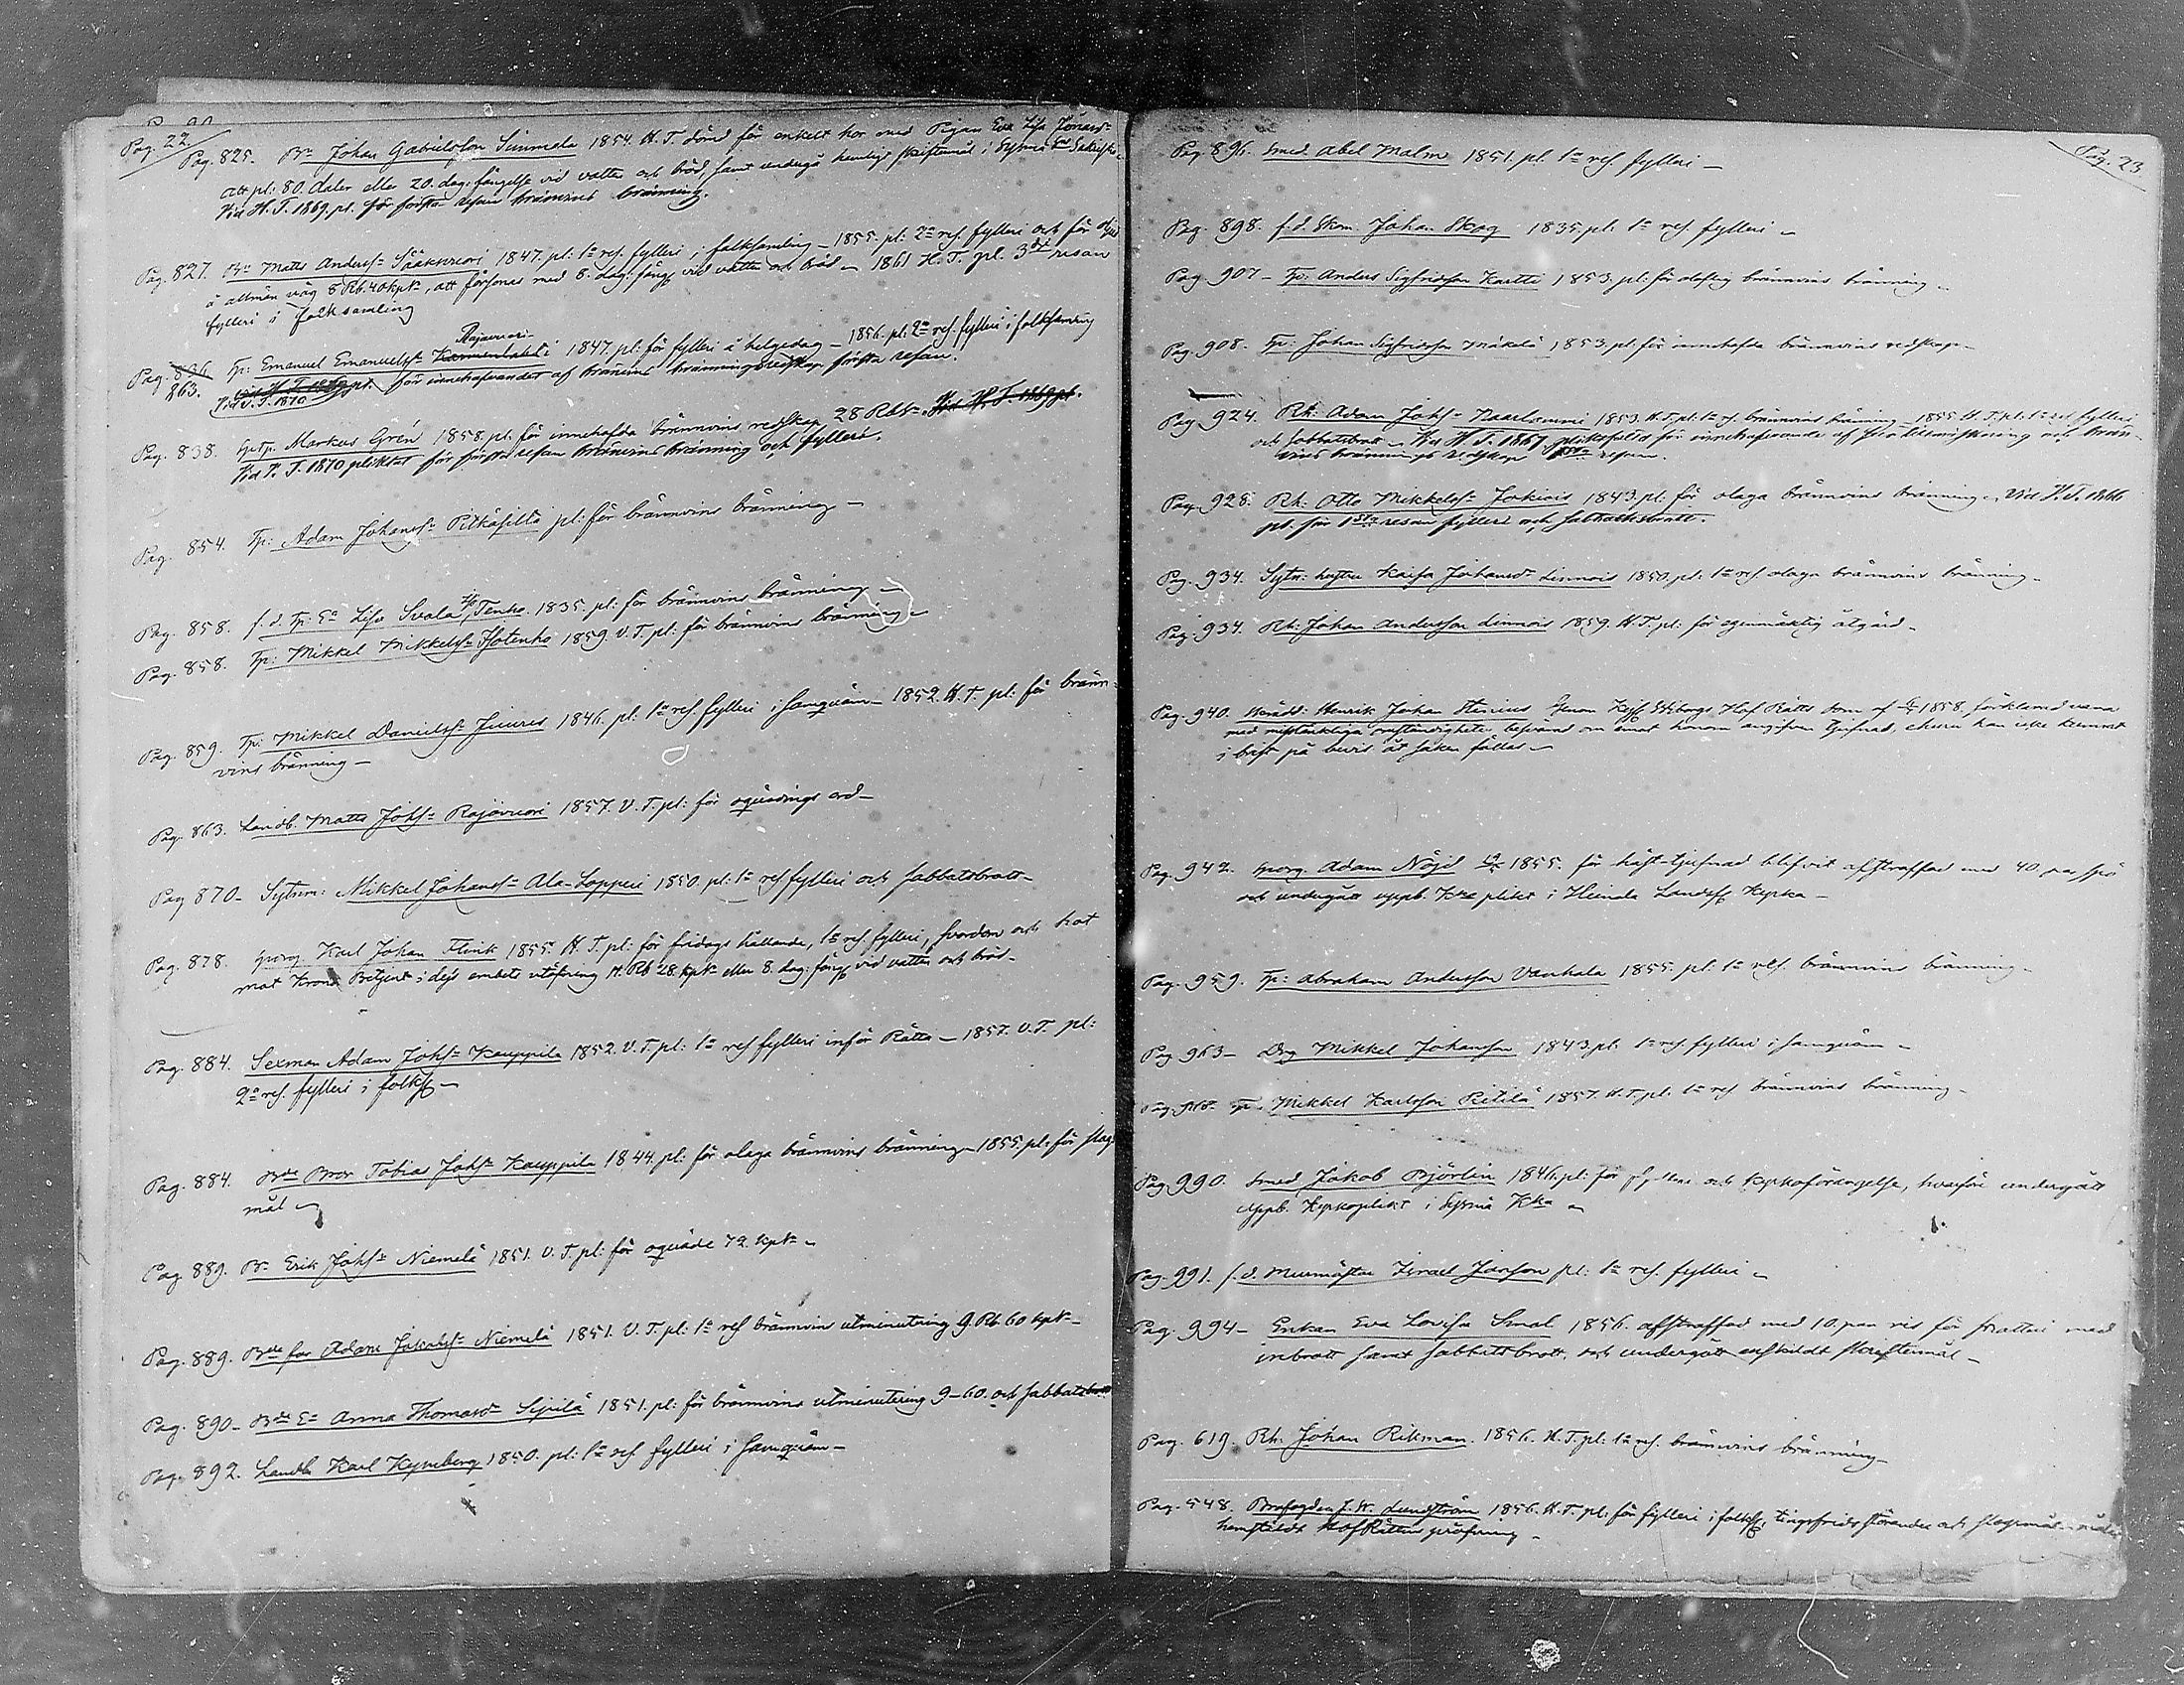 Pag. 22
Pag. 825. Bn Johan Gabrielsson Summala 1854. H. T. dömd för enkelt hor med Pigan Eva Lisa Jönasd:
att pl: 80. daler eller 20. dag: fängelse vid vatten och bröd, samt undergå hemligt skriftermål i Sysmä
Vid H. T. 1869. pl. för första resan bränvins bränning.
Pag. 827. Bn Matts Anderss: Sääksvuori 1847. pl: 1a res. fylleri i folksamling – 1855. pl: 2a res. fylleri och för
å allmän väg 8 Rb. 40 kpk, att försonas med 8. dag: fäng. vid vatten och bröd – 1861 H. T. pl. 3dje resan
fylleri i folksamling
Rajavuori
Pag. 836 Tp: Emanuel Emanuelss: 1847. pl: för fylleri å helgedag – 1856. pl: 2a res. fylleri i folksamling
863. Vid V. T. 1870 för innehafvandet af bränvins bränningsredskap första resan.
Pag. 838. Markus Grén 1858. pl. för innehafda brännvins redskap 28 Rbl. Vid H. T. 1869 pl.
Vid V. T. 1870 pliktat för första resan bränvins bränning och fylleri.
Pag. 854. Tp: Adam Johanss: Pitkäsilta pl: för brännvins bränning –
Pag. 858. f. d. Tp: Ea Lisa Svala Tenho. 1835. pl: för brännvins bränning –
Pag. 858. Tp: Mikkel Mikkelss: Isotenho 1859. V. T. pl: för brännvins bränning –
Pag. 859. Tp: Mikkel Danielss: Juures 1846. pl: 1a res. fylleri i samqväm – 1852. H. T. pl: för bränn-
vins bränning –
Pag. 863. Landb. Matts Johs: Rajavuori 1857. V. T. pl: för oqvädings ord –
Pag 870 – Sytnm: Mikkel Johanss: Ala-Sopperi 1850. pl: 1a res fylleri och sabbatsbrott –
Pag. 878. Sporg. Karl Johan Flink 1855. H. T. pl: för fridags hållande, 1a res. fylleri, svordom och hot
mot Krono Betjent i dess embets utöfning 14. Rb 28. kpk eller 8. dag: fäng. vid vatten och bröd –
Pag. 884. Sexman Adam Johs: Kauppila 1852. V. T. pl: 1a res fylleri inför Rätta – 1857. V. T. pl:
2a res. fylleri i folks. –
Pag. 884. Bdes Bror Tobias Johs: Kauppila 1844. pl: för olaga brännvins bränning – 1855. pl: för slags-
mål –
Pag. 889. Bn Erik Johs: Niemelä 1851. V. T. pl: för oqväde 72. kpk –
Pag. 889. Bdes far Adam Jakobss: Niemelä 1851. V. T. pl: 1a res brännvins utminutering 9 Rb 60 kpk –
Pag. 890 – Bdes Ea Anna Thomasd: Sipilä 1851. pl: för brännvins utminutering 9–60. och sabbatsbrott
Pag. 892. Landb: Karl Kymberg 1850. pl: 1a res. fylleri i samqväm –
Pag. 23
Pag. 896. Smed Abel Malm 1851. pl. 1a res fylleri –
Pag. 898. f. d. Skom. Johan Skog 1835. pl. 1a res. fylleri –
Pag. 907 – Tp: Anders Sigfridsson Kartti 1853. pl: för olaflig brännvins bränning –
Pag. 908. Tp: Johan Sigfridsson Mäkelä 1853. pl. för innehafda brännvins redskap –
Pag 924. Rh: Adam Johs: 1853. H. T. pl. 1a res. brännvins bränning 1855. H. T. pl. 1a res fylleri
och sabbatsbrott – Vid H. T. 1867 för innehafvande af och brän-
vins brännings redskap 1sta resan.
Pag. 928. Rh: Otto Mikkelss: Jokiois 1843. pl: för olaga brännvins bränning – Vid H. T. 1866
pl. för 1sta resan fylleri och sabbatsbrott.
Pag. 934. Sytn: hustru Kaisa Johansd: Linnois 1850. pl: 1a res. olaga brännvins bränning –
Pag. 934. Rh: Johan Andersson Linnois 1859. H. T. pl: för egenmäktig åtgärd –
Pag. 940. Henrik Johan genom Kejs. Wiborgs Hof Rätts dom af 1858. förklarad vara
med misstänkliga omständigheter besvärad om emot honom angifven tjufnad, ehuru han icke kunnat
i brist på bevis åt saken fällas –
Pag. 942. Sporg. Adam Nöjd 1855. för häst-tjufnad blifvit afstraffad med 40. par spö
och undergått uppb. Kko plikt i Heinola Landsf. Kyrka –
Pag. 959. Tp: Abraham Andersson Vanhala 1855. pl: 1a res. brännvins bränning –
Pag 963 – Drg Mikkel Johansson 1843. pl: 1a res. fylleri i samqväm –
Tp: Mikkel Karlsson Pietilä 1857. H. T. pl: 1a res brännvins bränning –
Pag. 990. Smed Jakob Björlin 1846. pl: för fylleri och kyrkoförargelse, hvarför undergått
uppb. Kyrkoplikt i Sysmä Kka –
Pag. 991. f. d. Murmästar Israel Janson pl: 1a res. fylleri –
Pag. 994 – Enkan Eva Lovisa Smal 1856. afstraffad med 10. par ris för snatteri med
inbrott samt sabbatsbrott, och undergått enskildt skriftermål –
Pag. 619. Rh. Johan Rikman. 1856. H. T. pl: 1a res. brännvins bränning –
Pag. 548. Brofogden J. W. Lundström 1856. H. T. pl: för fylleri i folks., tingsfrids störande och slagsmål –
hemstäldt HofRättens pröfning –